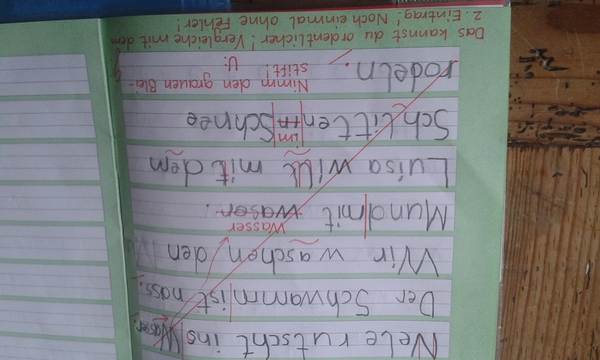 Nele rutscht ins Wasser.
Der Schwamm ist nass.
Wir waschen den
Wasser
Mund mit waser.
Luisa will mit dem
im
Schlitten in Schnee
rodeln.
Nimm den grauen Blei-
stift! U:
Das kannst du ordentlicher! Vergleiche mit dem
2. Eintrag! Noch einmal ohne Fehler!